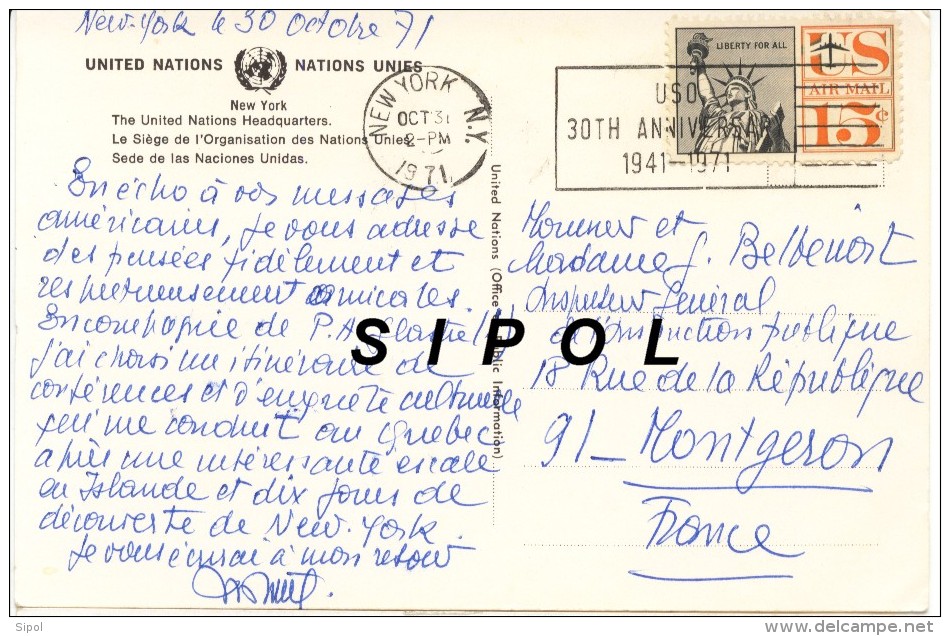 New-York le 30 Octobre 71
UNITED NATIONS NATIONS UNIES
New York
The United Nations Headquarters.
Le Siège de l'Organisation des Nations Unies
Sede de las Naciones Unidas.
NEW YORK N.Y.
OCT 31
2-PM
1971
LIBERTY FOR ALL
US
AIR MAIL
15¢
USO
30TH ANNIVERSAR
1941-1971
En écho à vos messages
américains, je vous adresse
des pensées fidèlement et
respectueusement amicales.
En compagnie de P.A.
j'ai choisi un itinéraire de
conférences et d'enquête culturelle
qui me conduit au Québec
après une intéressante escale
en Islande et dix jours de
découverte de New-York.
Je vous écrirai à mon retour
United Nations (Office Public Information)
Monsieur et
Madame J. Belbenoit
Inspecteur Général
de l'Instruction publique
18 Rue de la République
91_ Montgeron
France
SIPOL
Sipol
delcampe.net